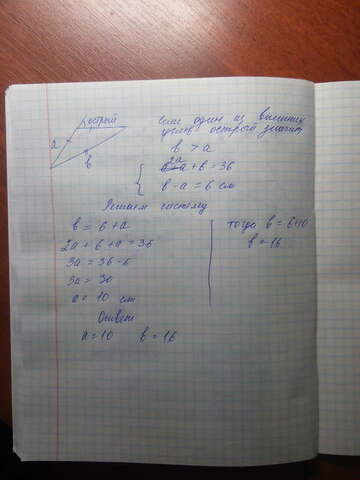 острый
a
b
если один из внешних
углов острый значит
b > a
2a + b = 36
b - a = 6 см
Решаем систему
b = 6 + a
2a + 6 + a = 36
3a = 36 - 6
3a = 30
a = 10 см
Ответ
a = 10 b = 16
тогда b = 6+10
b = 16